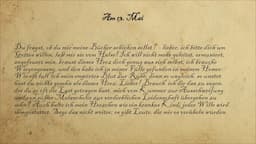 Am 13. Mai
Du fragst, ob du mir meine Bücher schicken sollst? – lieber, ich bitte dich um
Gottes willen, laß mir sie vom Halse! Ich will nicht mehr geleitet, ermuntert,
angefeuert sein, braust dieses Herz doch genug aus sich selbst; ich brauche
Wiegengesang, und den habe ich in seiner Fülle gefunden in meinem Homer.
Wie oft lull' ich mein empörtes Blut zur Ruhe, denn so ungleich, so unstet
hast du nichts gesehn als dieses Herz. Lieber! Brauch' ich dir das zu sagen,
der du so oft die Last getragen hast, mich vom Kummer zur Ausschweifung
und von süßer Melancholie zur verderblichen Leidenschaft übergehen zu
sehn? Auch halte ich mein Herzchen wie ein krankes Kind; jeder Wille wird
ihm gestattet. Sage das nicht weiter; es gibt Leute, die mir es verübeln würden.